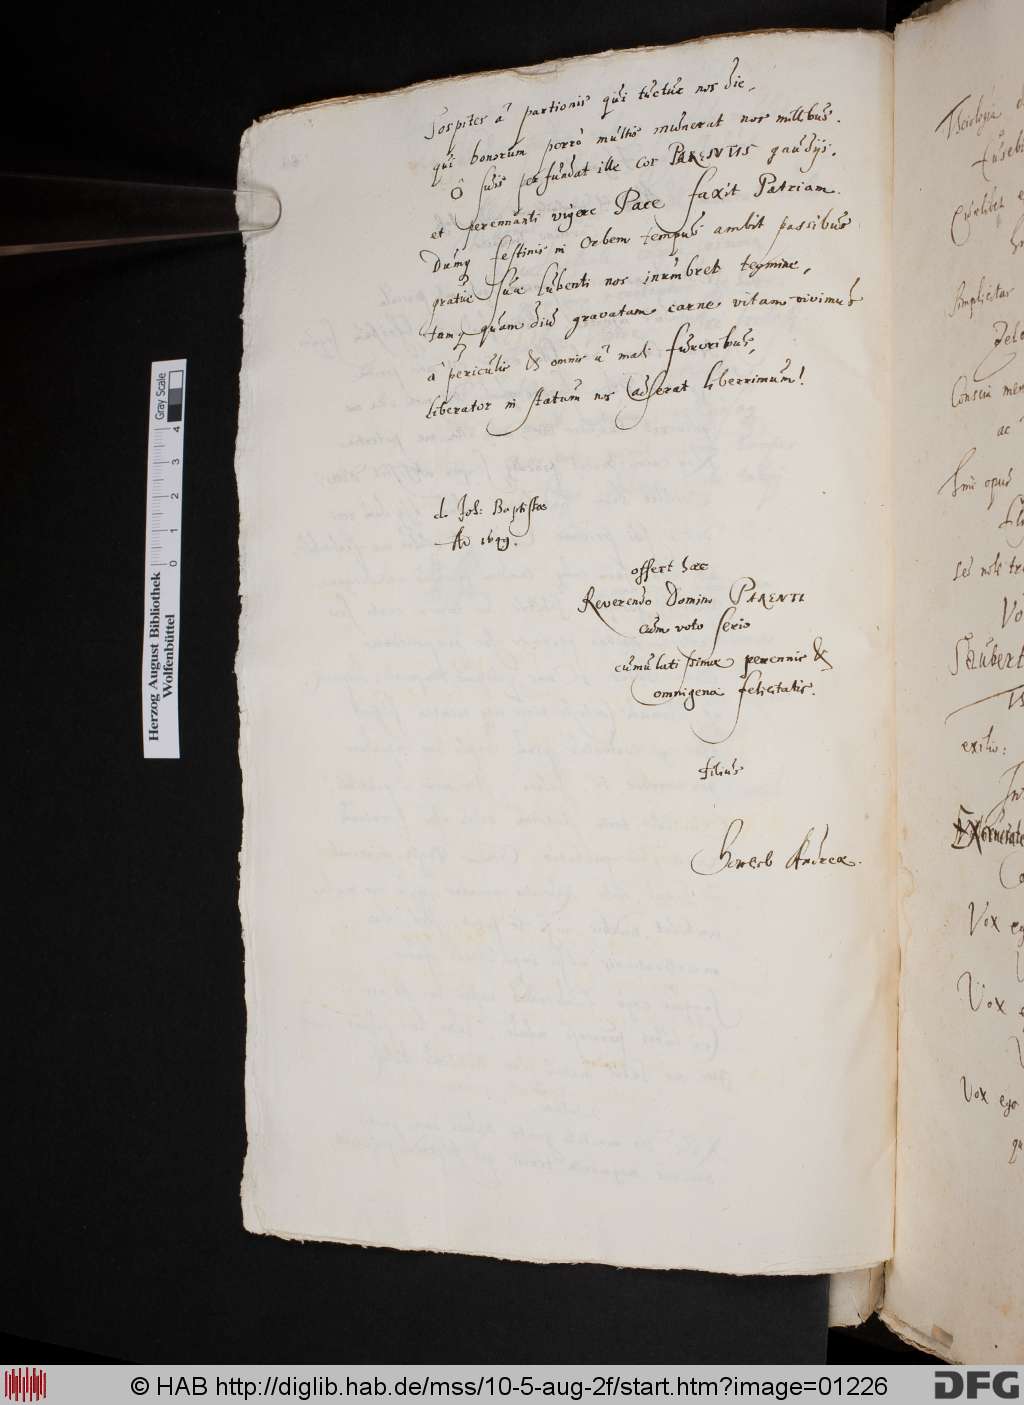 Sospites â partionis qui tuetur nos die,
qui bonorum porrò multis munerat nos millibus.
Ô suis perfundat ille cor PARENTIS gaudijs.
et perennanti vigere Pace faxit Patriam.
Dumq festinis in Orbem tempus ambit passibus
gratiæ suæ lubenti nos inumbret tegmine,
tamq quam diu gravatam carne vitam vivimus
â periculis & omnis â mali furoribus,
liberator in statum nos adserat liberrimum!
d. Joh: Baptistæ
Ao 1649.
offert hæc
Reverendo Domino PARENTI
cum voto serio
cumulatissimæ perennis &
omnigenæ felicitatis.
filius
Andreæ.
Theologiæ
Eusebi
Amplector
Zelo
Conscia men
ac
opus
Saubert
exitio:
Vox eg
Vox e
Vox ego
qu
Herzog August Bibliothek
Wolfenbüttel
0 1 2 3 4
Gray Scale
© HAB http://diglib.hab.de/mss/10-5-aug-2f/start.htm?image=01226
DFG